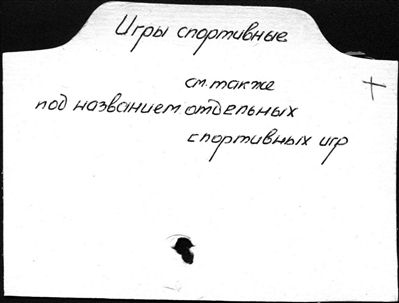 Игры спортивные
см. также
под названием отдельных
спортивных игр